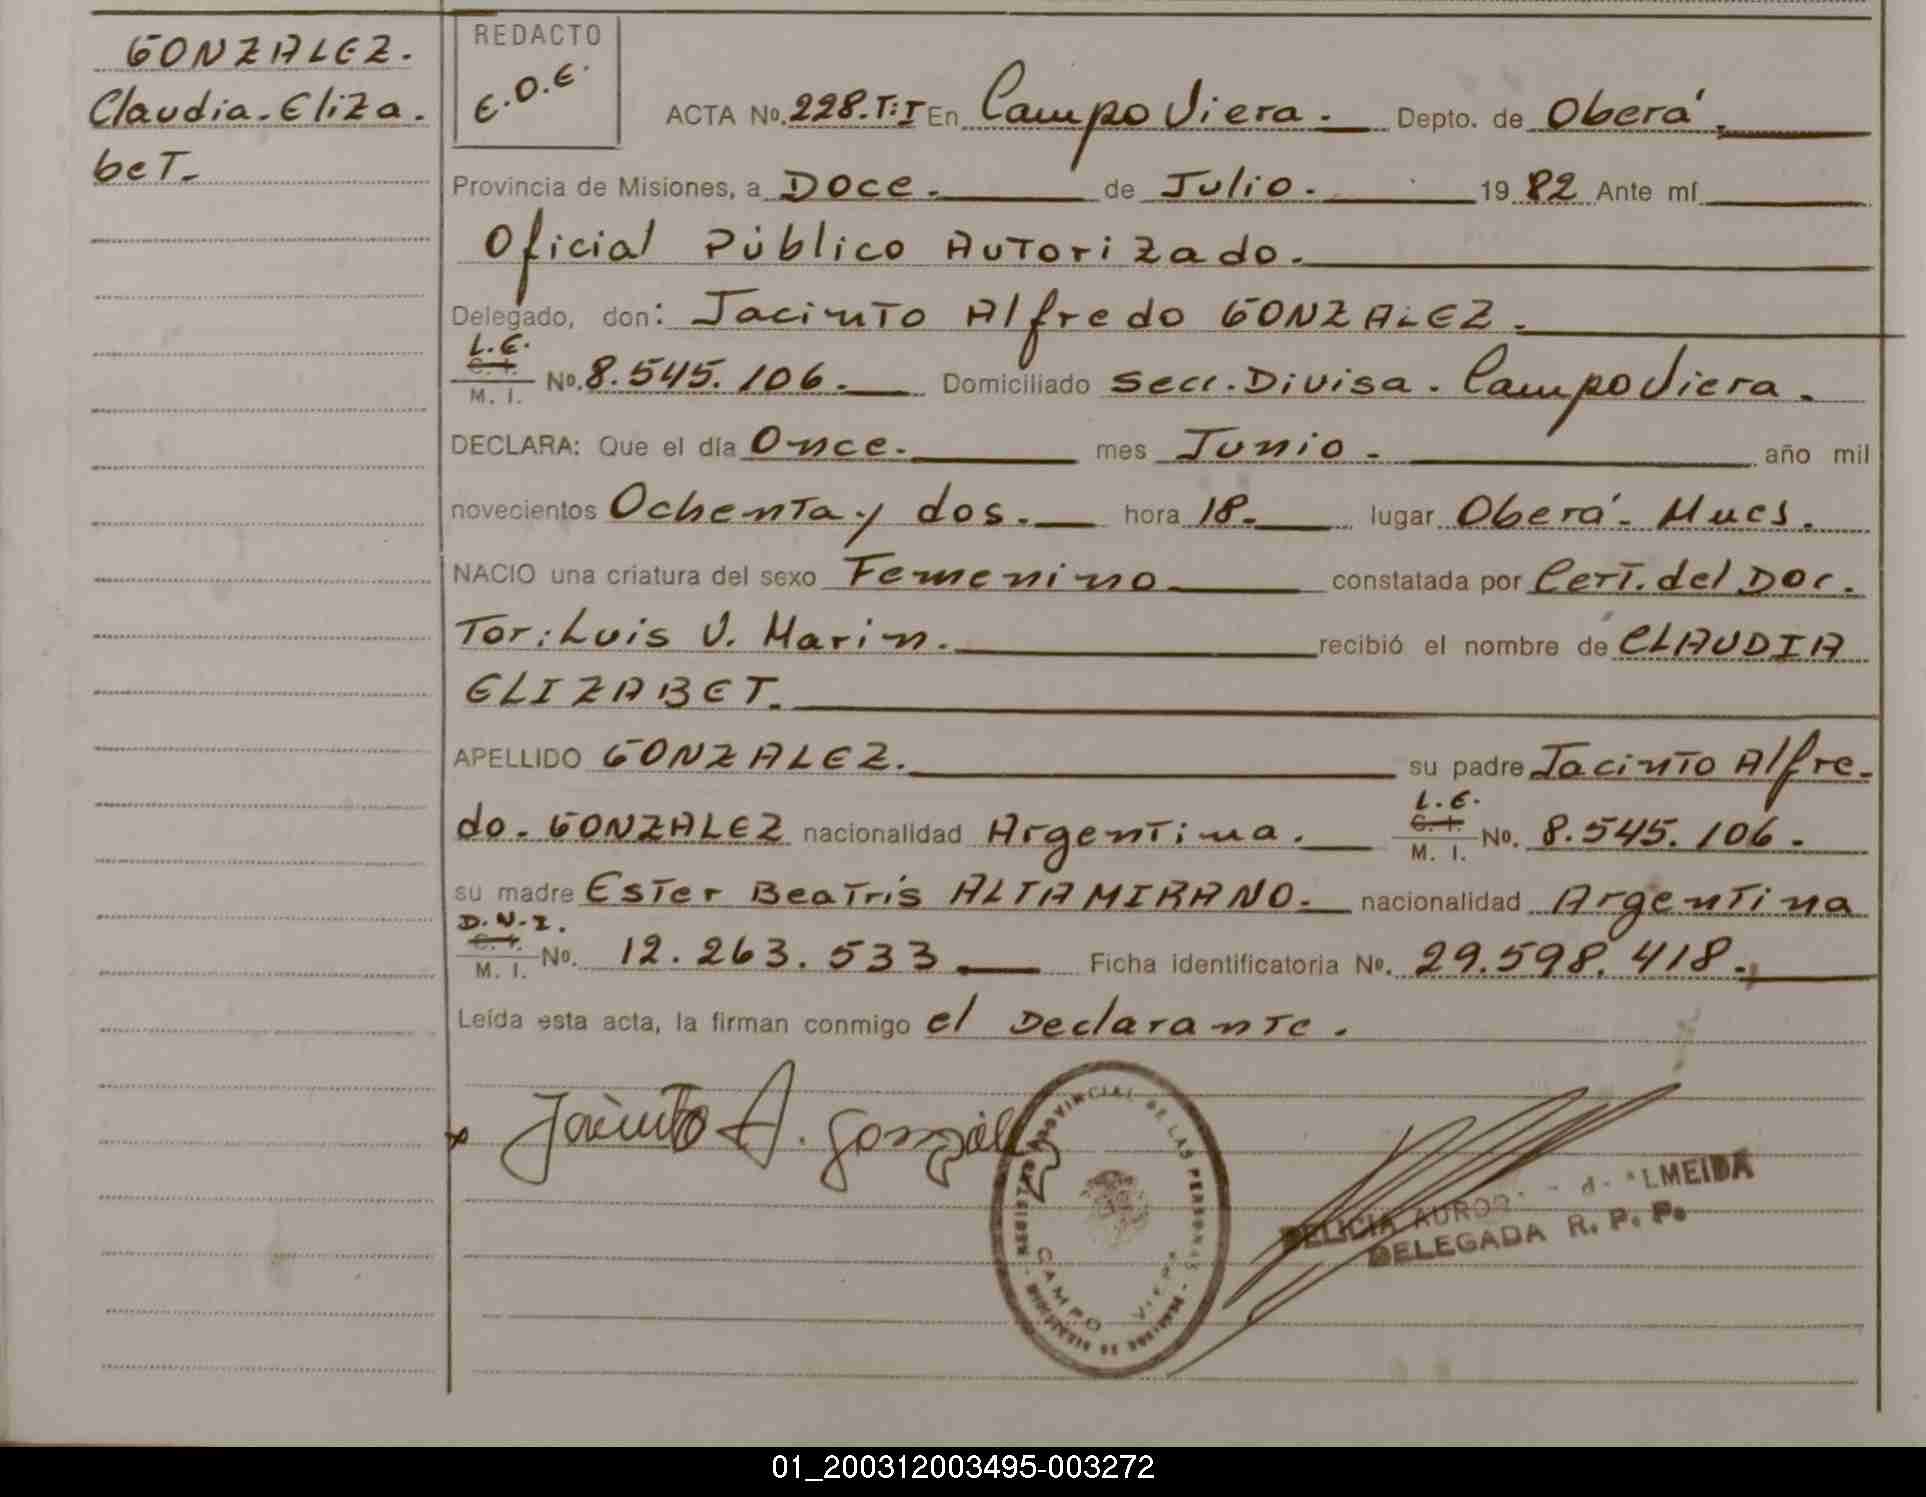 GONZALEZ.
Claudia. Eliza.
beT.
REDACTO
E.O.E.
ACTA No. 228.T:I En Campo Viera. Depto. de Oberá.
Provincia de Misiones, a Doce. de Julio. 19 82 Ante mí
Oficial Público Autorizado.
Delegado, don: Jacinto Alfredo GONZALEZ.
L.E.
C. I.
M. I. No. 8.545.106. Domiciliado Secc. Divisa. Campo Viera.
DECLARA: Que el día Once. mes Junio. año mil
novecientos Ochenta y dos. hora 18. lugar Oberá. Mnes.
NACIO una criatura del sexo Femenino constatada por Cert. del Doc.
Tor: Luis V. Marin. recibió el nombre de CLAUDIA
ELIZABET.
APELLIDO GONZALEZ. su padre Jacinto Alfre.
L.E.
C. I.
do. GONZALEZ nacionalidad Argentina. M. I. No. 8.545.106.
su madre Ester Beatrís ALTAMIRANO. nacionalidad Argentina
D.N.I.
C. I.
M. I. No. 12.263.533 Ficha identificatoria No. 29.598.418.
Leída esta acta, la firman conmigo el Declarante.
Jacinto A. Gonzalez
REGISTRO PROVINCIAL DE LAS PERSONAS
CAMPO VIERA
DELICIA AURORA d. ALMEIDA
DELEGADA R. P. P.
01_200312003495-003272